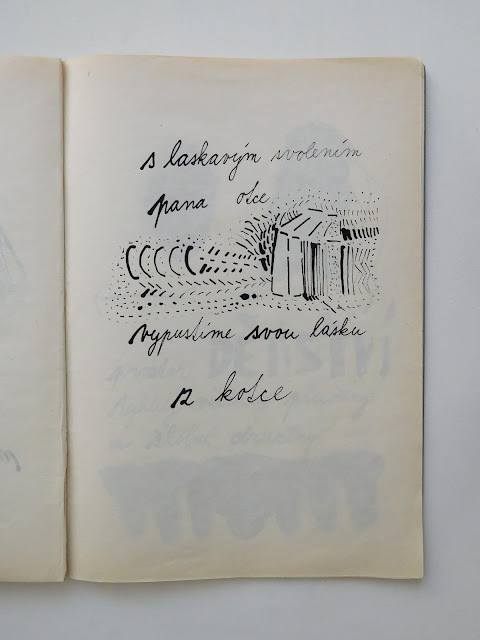 s laskavým svolením
pana otce
vypustíme svou lásku
z kotce